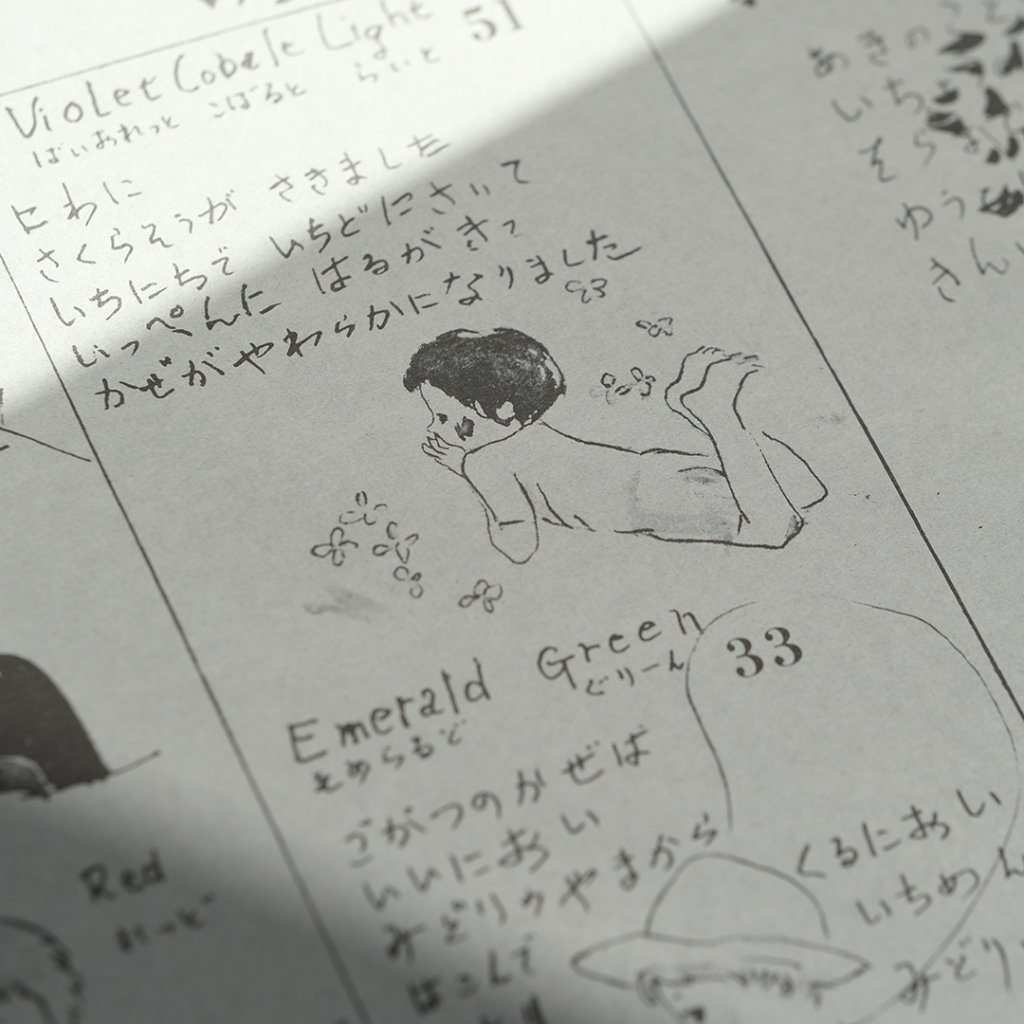 Violet Cobalt Light 51
ばいおれっと こばると らいと
にわに
さくらそうが さきました
いちにちで いちどにさいて
いっぺんに はるがきて
かぜがやわらかになりました
Emerald Green 33
えめらるど ぐりーん
ごがつのかぜは
いいにおい
みどりのやまから
はこんで
くるにおい
いちめん
みどり
Red
れっど
あきの
いち
そら
ゆう
きん